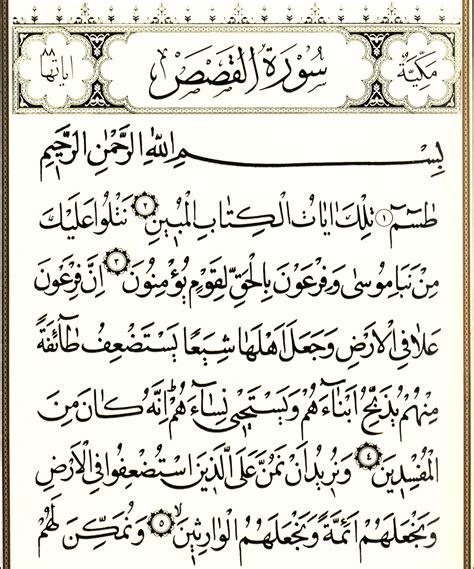 مكية سورة القصص اياتها ٨٨
بِسْمِ اللهِ الرَّحْمٰنِ الرَّحِيمِ
طٰسٓمٓ ١ تِلْكَ اٰيَاتُ الْكِتَابِ الْمُبِينِ ٢ نَتْلُوا عَلَيْكَ
مِنْ نَبَاِ مُوسٰى وَفِرْعَوْنَ بِالْحَقِّ لِقَوْمٍ يُؤْمِنُونَ ٣ اِنَّ فِرْعَوْنَ
عَلَا فِي الْاَرْضِ وَجَعَلَ اَهْلَهَا شِيَعًا يَسْتَضْعِفُ طَٓائِفَةً
مِنْهُمْ يُذَبِّحُ اَبْنَٓاءَهُمْ وَيَسْتَحْيٖ نِسَٓاءَهُمْ اِنَّهُ كَانَ مِنَ
الْمُفْسِدِينَ ٤ وَنُرِيدُ اَنْ نَمُنَّ عَلَى الَّذِينَ اسْتُضْعِفُوا فِي الْاَرْضِ
وَنَجْعَلَهُمْ اَئِمَّةً وَنَجْعَلَهُمُ الْوَارِثِينَ ٥ وَنُمَكِّنَ لَهُمْ